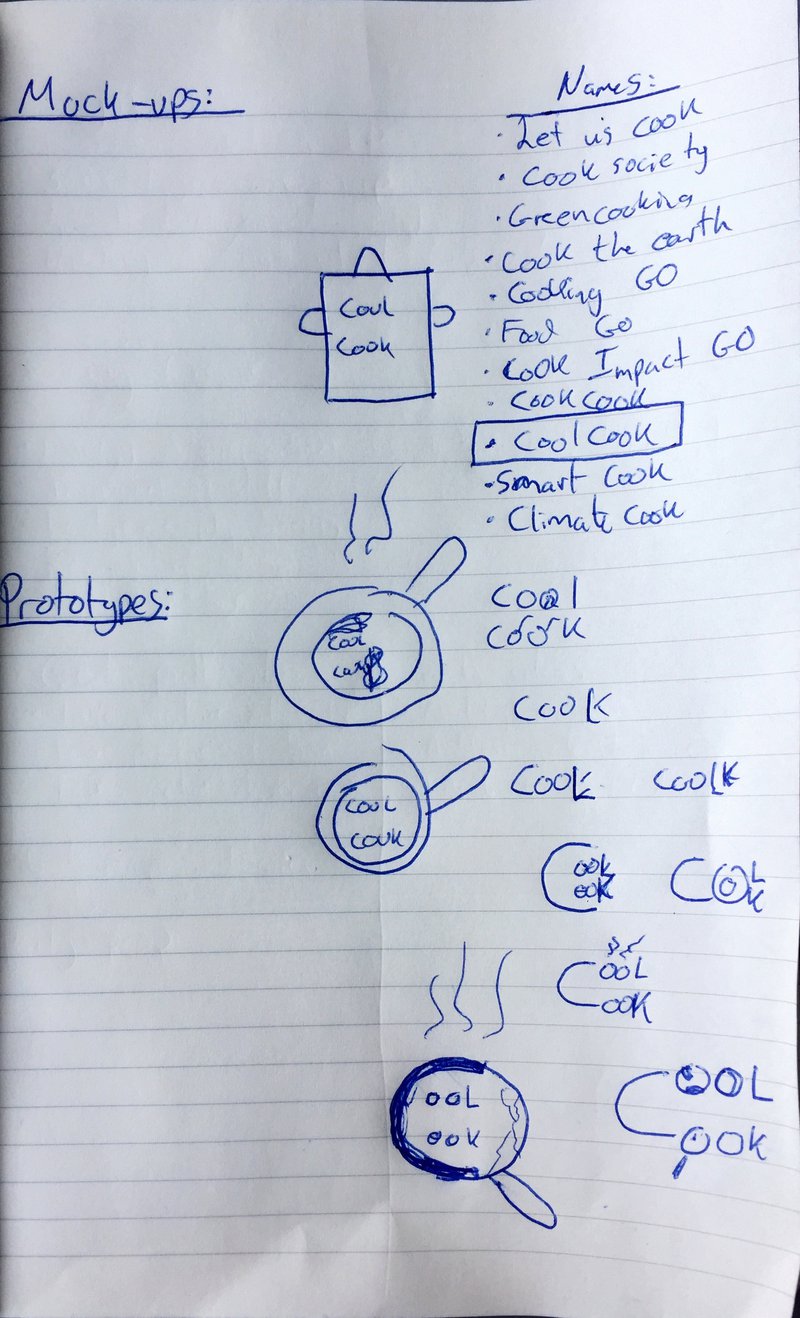 Mock-ups:
Names:
• Let us cook
• Cook society
• Greencooking
• Cook the earth
• Cooking GO
• Food Go
• Cook Impact GO
• Cookcook
• CoolCook
• Smart Cook
• Climate Cook
Cool
Cook
Prototypes:
Cool
Cook
Cook
COOL
COOK
Cook
COOLK
C OOK
OOK
COL
K
COOL
OOK
OOL
OOK
COOL
OOK